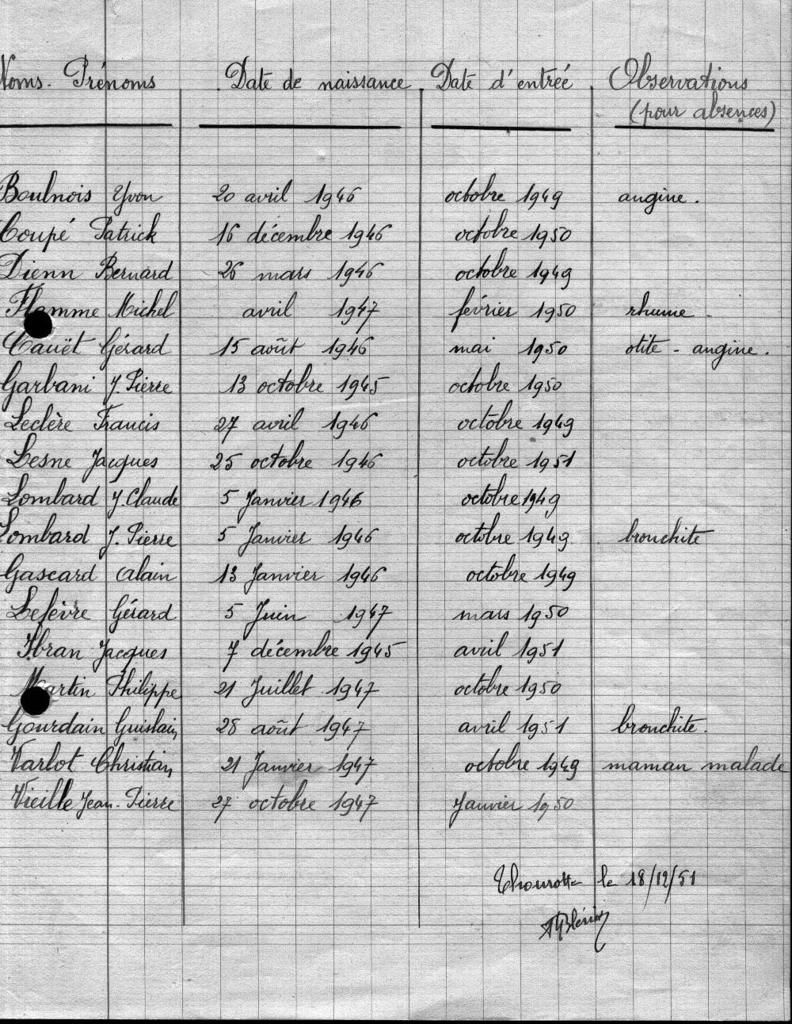 Noms. Prénoms Date de naissance Date d'entrée Observations
(pour absences)
Boulnois Yvon 20 avril 1946 octobre 1949 angine.
Coupé Patrick 16 décembre 1946 octobre 1950
Dienn Bernard 26 mars 1946 octobre 1949
Flamme Michel avril 1947 février 1950 rhume.
Cauët Gérard 15 août 1946 mai 1950 otite - angine.
Garbani J. Pierre 13 octobre 1945 octobre 1950
Leclère Francis 27 avril 1946 octobre 1949
Lesne Jacques 25 octobre 1946 octobre 1951
Lombard J. Claude 5 Janvier 1946 octobre 1949
Lombard J. Pierre 5 Janvier 1946 octobre 1949 bronchite
Gascard Alain 13 Janvier 1946 octobre 1949
Lefèvre Gérard 5 Juin 1947 mars 1950
Jacques 7 décembre 1945 avril 1951
Martin Philippe 21 Juillet 1947 octobre 1950
Gourdain Guislain 28 août 1947 avril 1951 bronchite.
Varlot Christian 21 Janvier 1947 octobre 1949 maman malade
Vieille Jean-Pierre 27 octobre 1947 Janvier 1950
Thourotte le 18/12/51